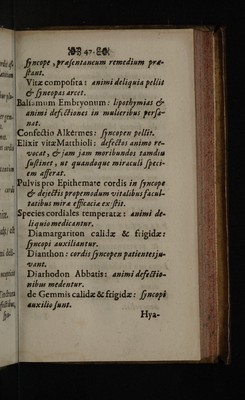 47.
syncope, præsentaneum remedium præ-
stant.
Vitæ composita: animi deliquia pellit
& syncopas arcet.
Balsamum Embryonum: lipothymias &
animi defectiones in mulieribus persa-
nat.
Confectio Alkermes: syncopen pellit.
Elixir vitæ Matthioli: defectos animo re-
vocat, & jam jam moribundos tamdiu
sustinet, ut quandoque miraculi speci-
em afferat.
Pulvis pro Epithemate cordis in syncope
& dejectis propemodum vitalibus facul-
tatibus mira efficacia existit.
Species cordiales temperatæ: animi de-
liquio medicantur.
Diamargariton calidæ & frigidæ:
syncopi auxiliantur.
Dianthon: cordis syncopen patientes ju-
vant.
Diarhodon Abbatis: animi defectio-
nibus medentur.
de Gemmis calidæ & frigidæ: syncopi
auxilio sunt.
Hya-